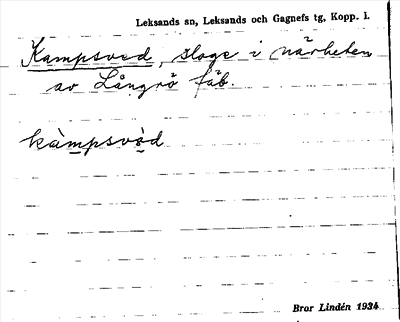 Leksands sn, Leksands och Gagnefs tg, Kopp. l.
Kampsved, sloge i närheten
av Långrö fäb.
kàmpsvèd
Bror Lindén 1934